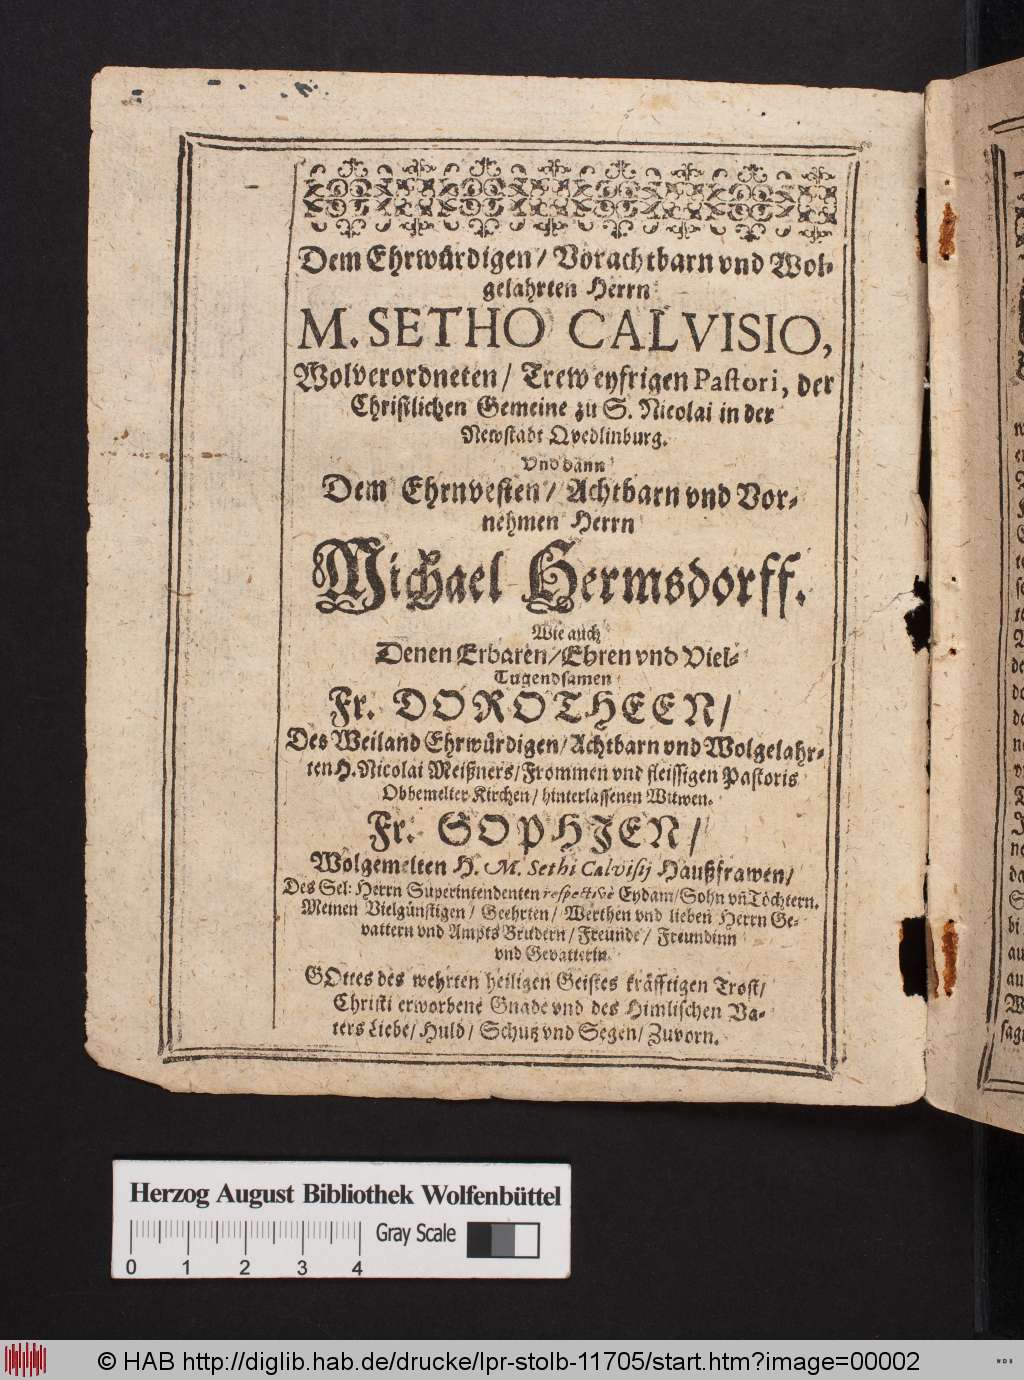 Dem Ehrwürdigen/ Vorachtbarn vnd Wol-
gelahrten Herrn
M. SETHO CALVISIO,
Wolverordneten/ Trew eyfrigen Pastori, der
Christlichen Gemeine zu S. Nicolai in der
Newstadt Qvedlinburg.
Vnd dann
Dem Ehrnvesten/ Achtbarn vnd Vor-
nehmen Herrn
Michael Hermsdorff.
Wie auch
Denen Erbaren/ Ehren vnd Viel-
Tugendsamen
Fr. DOROTHEEN/
Des Weiland Ehrwürdigen/ Achtbarn vnd Wolgelahr-
ten H. Nicolai Meißners/ Frommen vnd fleissigen Pastoris
Obbemelter Kirchen/ hinterlassenen Witwen.
Fr. SOPHIEN/
Wolgemelten H. M. Sethi Calvisij Haußfrawen/
Des Sel: Herrn Superintendenten respectivè Eydam/ Sohn vñ Töchtern.
Meinen Vielgünstigen/ Geehrten/ Werthen vnd lieben Herrn Ge-
vattern vnd Ampts Brüdern/ Freunde/ Freundinn
vnd Gevatterin.
GOttes des wehrten heiligen Geistes kräfftigen Trost/
Christi erworbene Gnade vnd des Himlischen Va-
ters Liebe/ Huld/ Schutz vnd Segen/ Zuvorn.
Herzog August Bibliothek Wolfenbüttel
Gray Scale
0 1 2 3 4
© HAB http://diglib.hab.de/drucke/lpr-stolb-11705/start.htm?image=00002